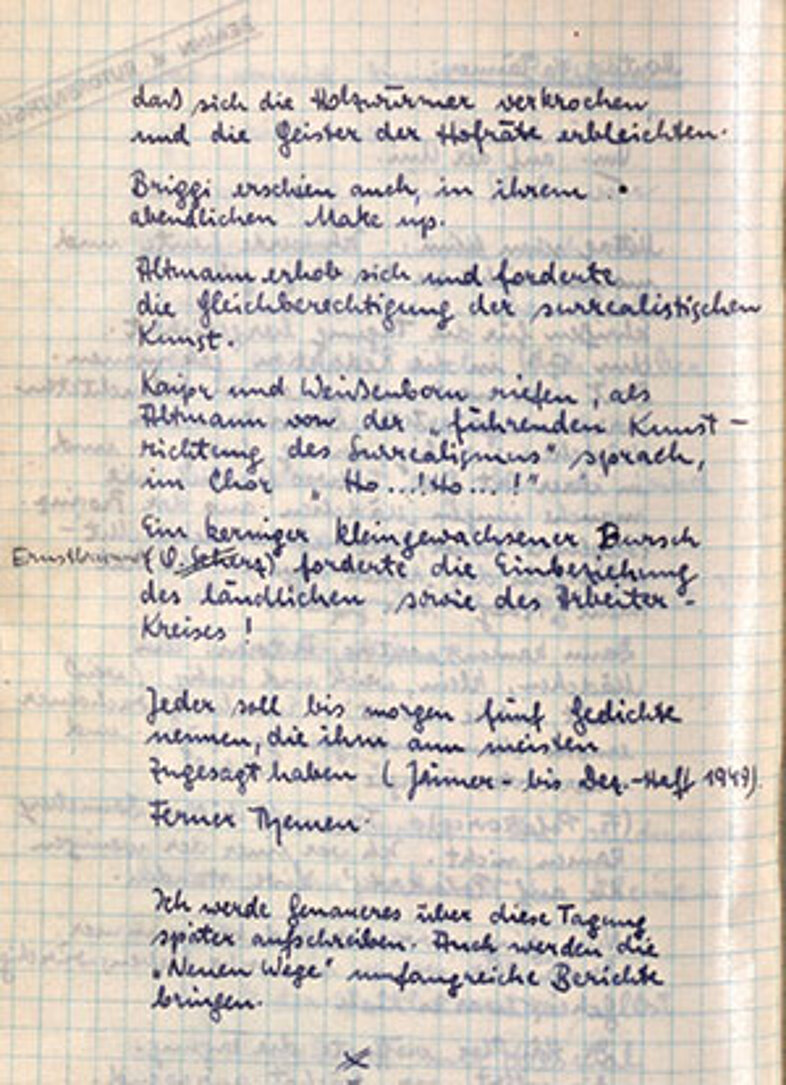 daß sich die Holzwürmer verkrochen
und die Geister der Hofräte erbleichten.
Briggi erschien auch, in ihrem
abendlichen Make up.
Altmann erhob sich und forderte
die Gleichberechtigung der surrealistischen
Kunst.
Kaipr und Weißenborn riefen, als
Altmann von der „führenden Kunst-
richtung des Surrealismus" sprach,
im Chor „Ho...! Ho...!"
Ein kerniger kleingewachsener Bursch
(V. Scherz) forderte die Einbeziehung
des ländlichen sowie des Arbeiter-
Kreises!
Jeder soll bis morgen fünf Gedichte
nennen, die ihm am meisten
zugesagt haben (Jänner- bis Dez.-Heft 1949).
Ferner Themen.
Ich werde Genaueres über diese Tagung
später aufschreiben. Auch werden die
„Neuen Wege" umfangreiche Berichte
bringen.